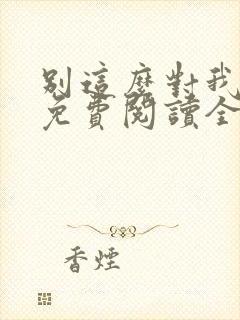 別這麼對我
免費閱讀全
香煙